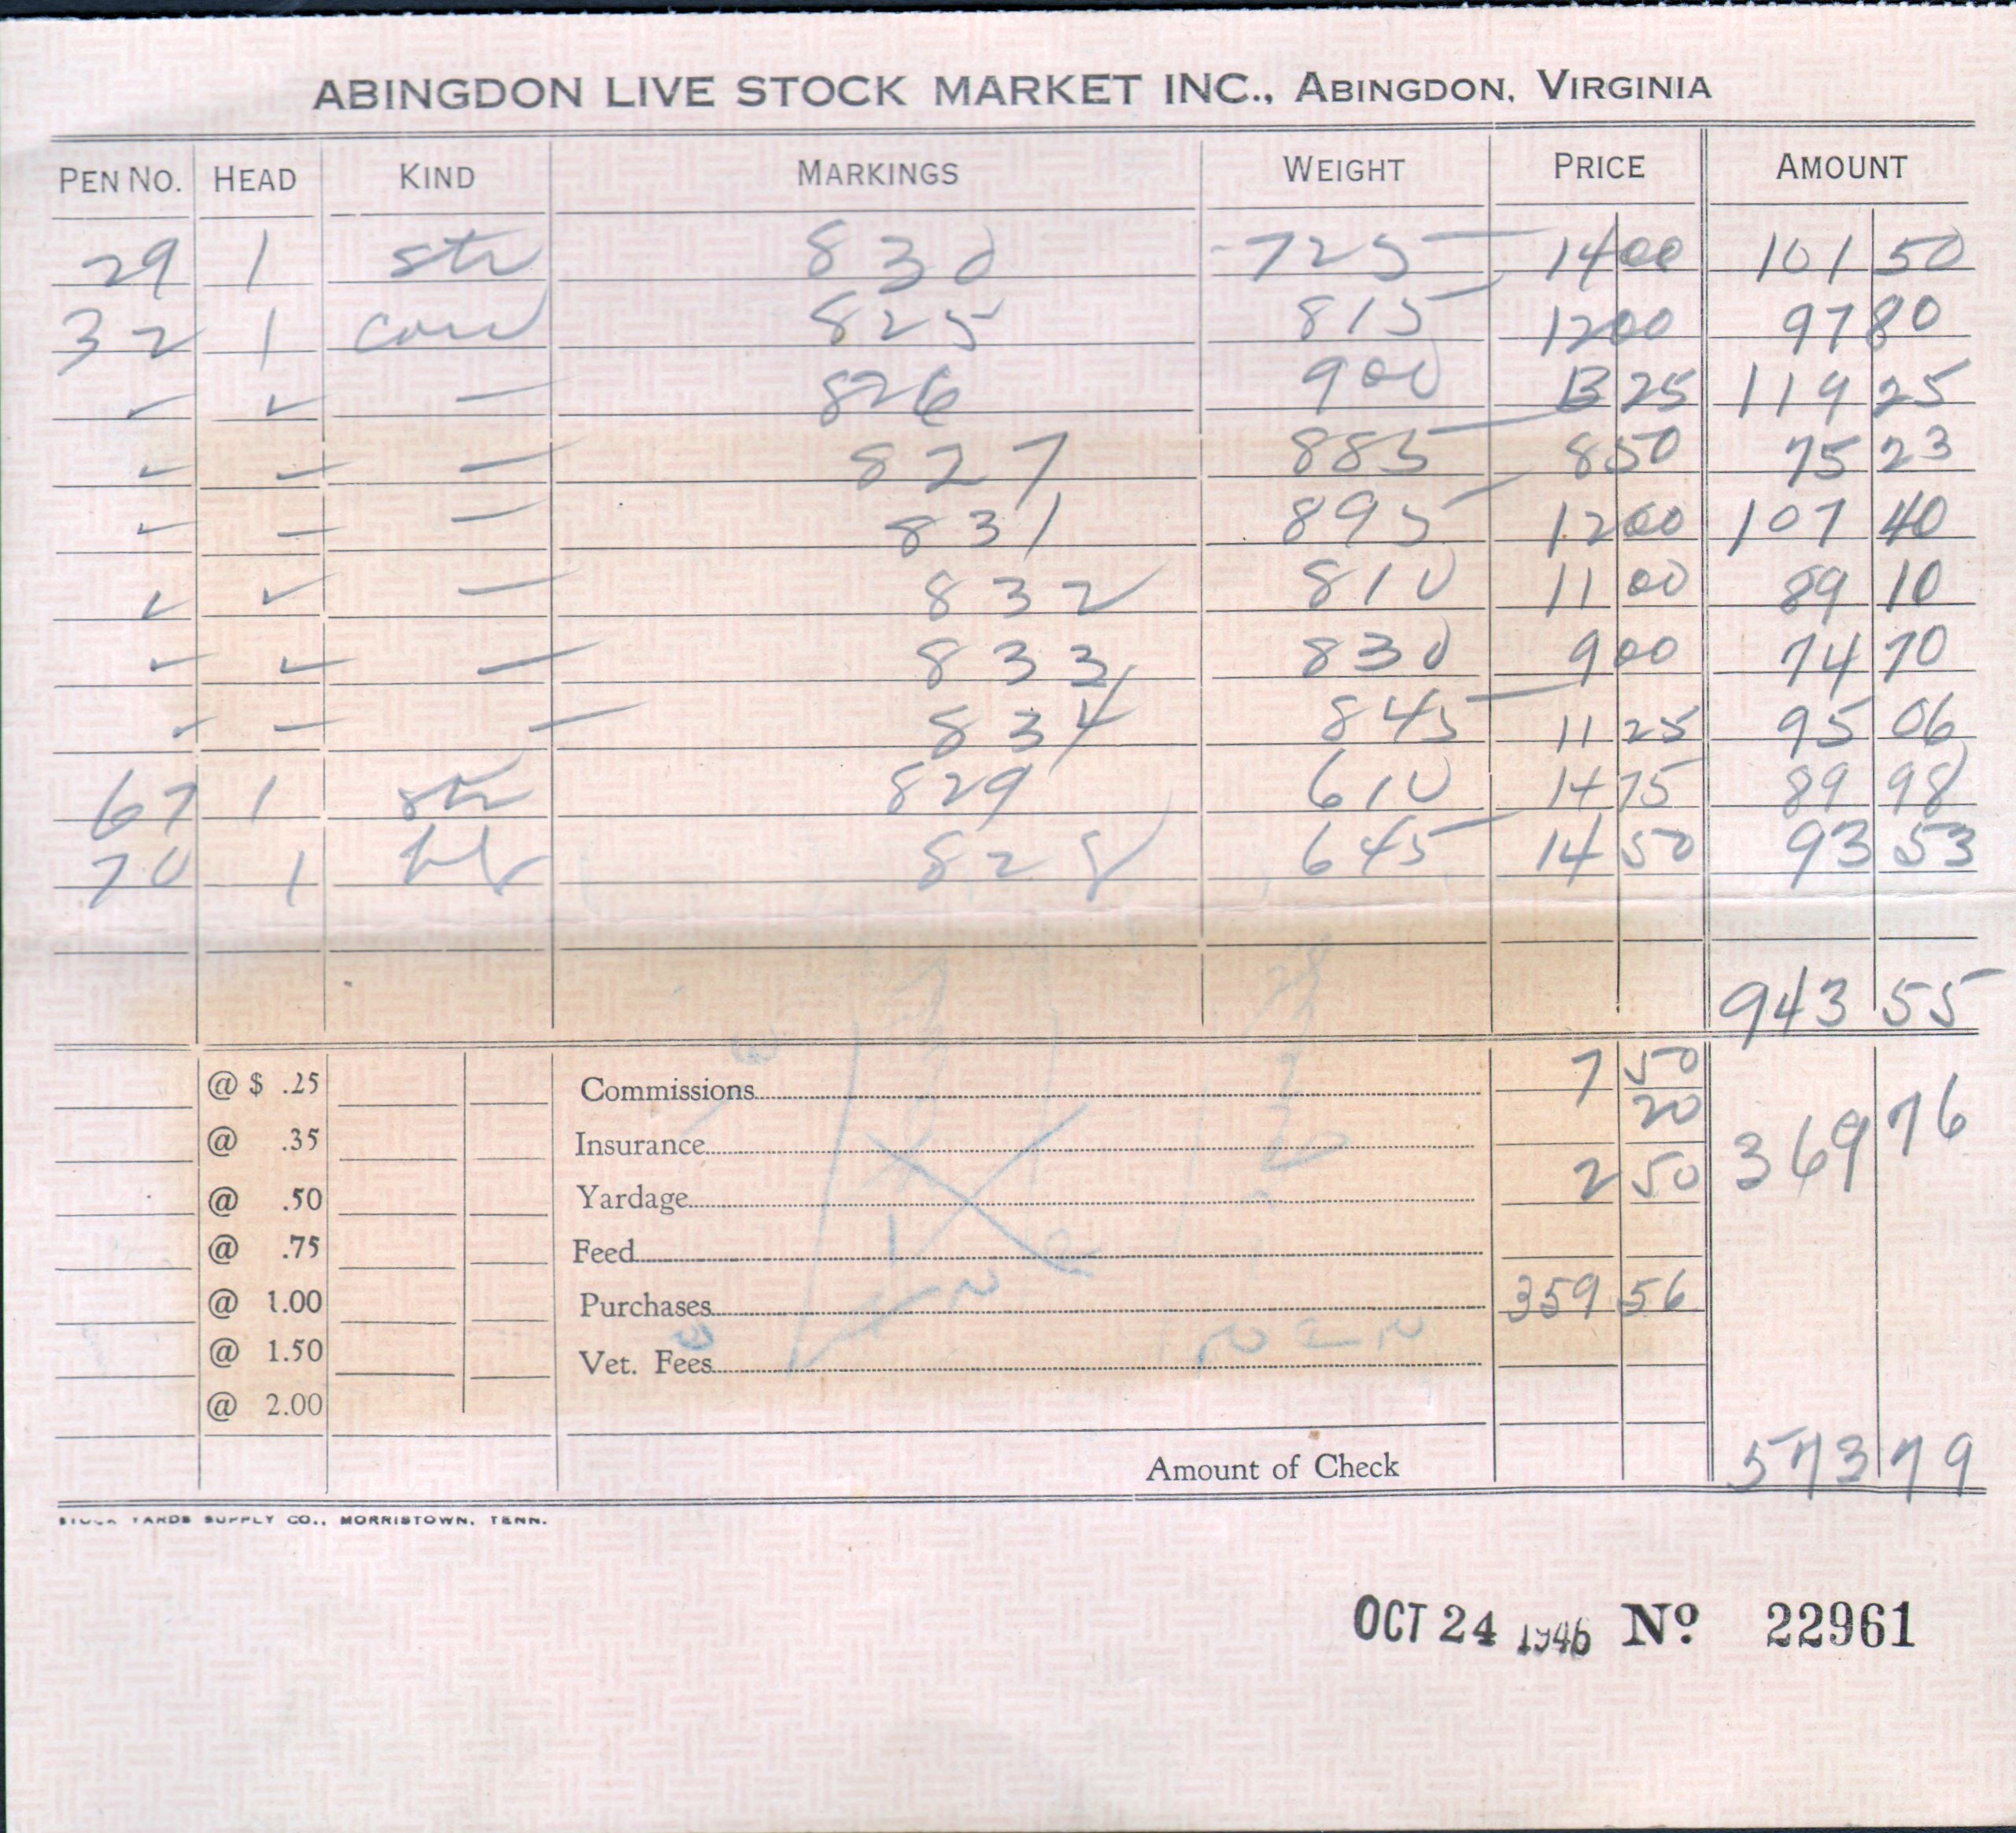 ABINGDON LIVE STOCK MARKET INC., ABINGDON, VIRGINIA
PEN NO. HEAD KIND MARKINGS WEIGHT PRICE AMOUNT
29 1 str 830 725 14 00 101 50
32 1 cow 825 815 12 00 97 80
826 900 13 25 119 25
827 885 8 50 75 23
831 895 12 00 107 40
832 810 11 00 89 10
833 830 9 00 74 70
834 845 11 25 95 06
67 1 str 829 610 14 75 89 98
70 1 828 645 14 50 93 53
943 55
@ $ .25 Commissions 7 50
@ .35 Insurance 20 369 76
@ .50 Yardage 2 50
@ .75 Feed
@ 1.00 Purchases 359 56
@ 1.50 Vet. Fees
@ 2.00
Amount of Check 573 79
STOCK YARDS SUPPLY CO., MORRISTOWN, TENN.
OCT 24 1946 Nº 22961